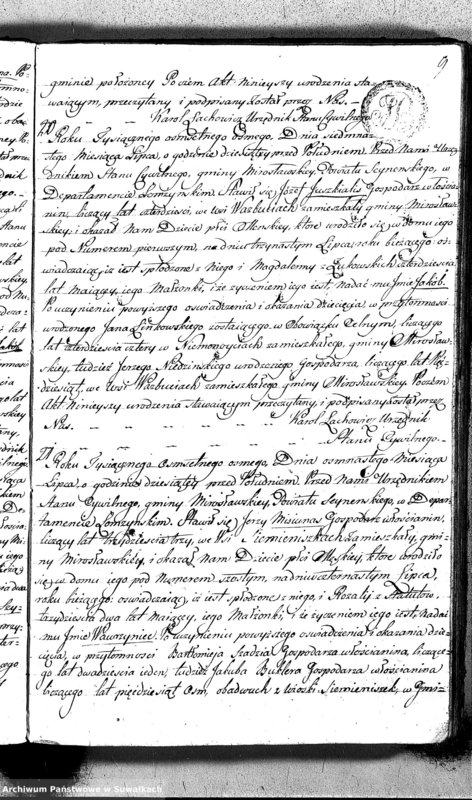 9
gminie położoney Poczem Akt ninieyszy urodzenia sta-
waiącym, przeczytany i podpisany został przez Nas. —
Karol Lachowicz Urzędnik Stanu Cywilnego
20 Roku Tysiącznego osmsetnego osmego, Dnia siedmna-
stego Miesiąca Lipca, o godzinie dziesiątey przed Południem. Przed Nami Urzę-
dnikiem Stanu Cywilnego, gminy Mirosławskiey, Powiatu Seynenskiego, w
Departamencie Łomżynskim. Stawił się Józef Juszkialis Gospodarz włościa-
nin, liczący lat czterdzieści, we wsi Warbuciach zamieszkały gminy Mirosław-
skiey; i okazał Nam Dziecie płci Męskiey, które urodziło się w domu iego
pod Numerem pierwszym, na dniu trzynastym Lipca, roku bieżącego oś-
wiadczaiąc, iż iest spłodzone z Niego i Magdaleny z Żukowskich czterdzieści
lat maiącey, iego Małżonki, i że życzeniem iego iest, nadać mu Jmie Jakób.
Po uczynieniu powyższego oswiadczenia i okazania dziecięcia w przytomności
urodzonego Jana Linkowskiego zostaiącego, w Obowiązku Celnym, liczącego
lat czterdzieści cztery w Niemonoyciach zamieszkałego, gminy Mirosław-
skiey, tudzież Jerzego Niedzinskiego urodzonego Gospodarza, liczącego lat Pię-
dziesiąt, we wsi Warbuciach zamieszkałego gminy Mirosławskiey. Poczem
Akt Ninieyszy urodzenia stawaiącym przeczytany, i podpisany został przez
Nas. — Karol Lachowicz Urzędnik
Stanu Cywilnego. —
21 Roku Tysiącznego Osmsetnego osmego, Dnia osmnastego Miesiąca
Lipca, o godzinie dziesiątey przed Południem. Przed Nami Urzędnikiem
Stanu Cywilnego, gminy Mirosławskiey, Powiatu Seynenskiego, w Depar-
tamencie Łomżynskim. Stawił się Jerzy Misiunas Gospodarz włościanin,
liczący lat trzydzieści trzy, we wsi Siemieniszkach, zamieszkały, gmi-
ny Mirosławskiey, i okazał Nam Dziecie płci Męskiey, które urodziło
się w domu iego pod Numerem szostym, na dniu czternastym Lipca,
roku bieżącego: oswiadczaiąc, iż iest spłodzone z niego, i Rozalij z Statutow,
trzydzieści dwa lat maiącey, iego Małżonki, i że życzeniem iego iest, nadać
mu Jmie Wawrzyniec. Po uczynieniu powyższego oswiadczenia i okazania dzie-
cięcia, w przytomności Bartłomieja Szadzia Gospodarza włościanina, liczące-
go lat dwadzieścia ieden, tudzież Jakuba Butlera Gospodarza włościanina
liczącego lat pięćdziesiąt Osm, obudwuch z wioski Siemieniszek, w Gmi-
Archiwum Państwowe w Suwałkach